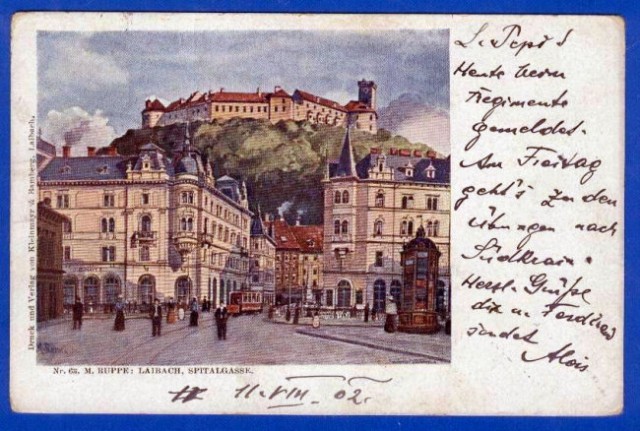 L. Pepi!
Heute beim
Regimente
gemeldet.
Am Freitag
geht's zu den
Übungen nach
Südkrain.
Herzl. Grüße
dir u. Ferdinand
sendet Alois
Druck und Verlag von Kleinmayr & Bamberg, Laibach.
Nr. 62. M. RUPPE: LAIBACH, SPITALGASSE.
11. VIII. 02.